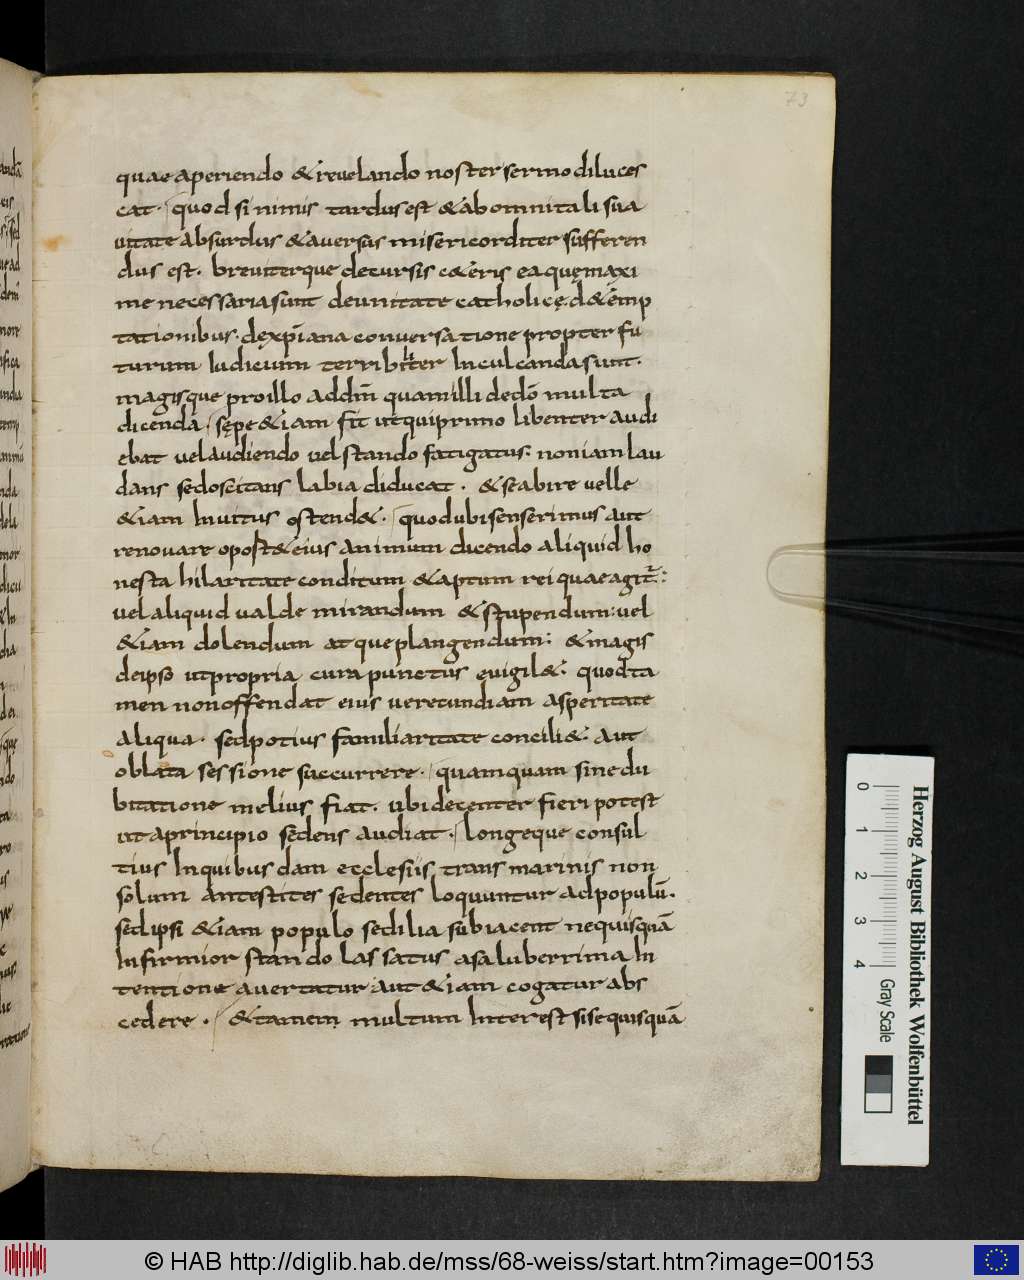 73
quae aperiendo & revelando noster sermo diluces
cat. quod si nimis tardus est & ab omni tali sua
uitate absurdus & aversus misericorditer sufferen
dus est. breuiterque decursis c&eris ea quę maxi
me necessaria sunt de unitate catholicę. d& ēmp
tationibus. de xp̄iana conversatione propter fu
turum Iudicium terribiliter Inculcanda sunt.
magisque pro illo ad dm̄ quam illi de dō multa
dicenda. sępe &iam fit ut qui primo libenter audi
ebat vel audiendo vel stando fatigatus. non iam lau
dans sed oscitans labia diducat. & se abire uelle
&iam Inuitus ostend&. quod ubi senserimus aut
renouare oport& eius animum dicendo aliquid ho
nesta hilaritate conditum & aptum rei quae agit̄:
vel aliquid ualde mirandum & stupendum: vel
&iam dolendum atque plangendum: & magis
de ipso ut propria cura punctus euigil&. quod ta
men non offendat eius verecundiam asperitate
aliqua. sed potius familiaritate concili&. aut
oblata sessione succurrere. quamquam sine du
bitatione melius fiat. ubi decenter fieri potest
ut a principio sedens audiat. longeque consul
tius In quibusdam ecclesiis transmarinis non
solum antestites sedentes loquuntur ad populū.
sed ipsi &iam populo sedilia subiacent ne quisquā
Infirmior stando lassatus a saluberrima In
tentione avertatur aut &iam cogatur abs
cedere. & tamen multum Interest si se quisquā
0 1 2 3 4
Gray Scale
Herzog August Bibliothek Wolfenbüttel
© HAB http://diglib.hab.de/mss/68-weiss/start.htm?image=00153